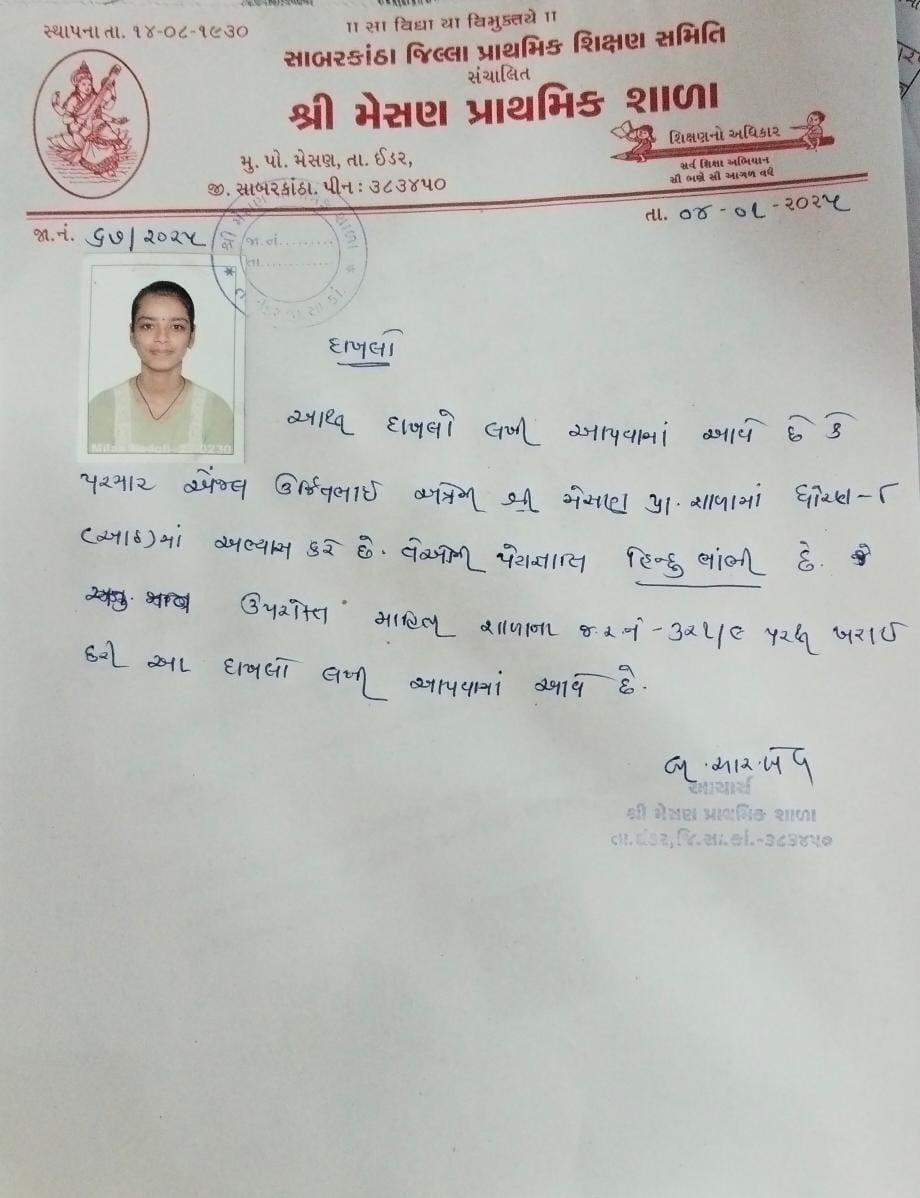 સ્થાપના તા. ૧૪-૦૮-૧૯૩૦
।। સા વિદ્યા યા વિમુક્તયે ।।
સાબરકાંઠા જિલ્લા પ્રાથમિક શિક્ષણ સમિતિ
સંચાલિત
શ્રી મેસણ પ્રાથમિક શાળા
શિક્ષણનો અધિકાર
સર્વ શિક્ષા અભિયાન
સૌ ભણે સૌ આગળ વધે
મુ. પો. મેસણ, તા. ઈડર,
જી. સાબરકાંઠા. પીન : ૩૮૩૪૫૦
તા. ૦૪-૦૮-૨૦૨૫
જા.નં. ૬૭/૨૦૨૫
જા.નં.
તા.
દાખલો
આથી દાખલો લખી આપવામાં આવે છે કે
પરમાર એંજલ ઉર્જિતભાઈ અત્રેની શ્રી મેસણ પ્રા. શાળામાં ધોરણ-૮
(આઠ)માં અભ્યાસ કરે છે. તેઓની પેટાજાતિ હિન્દુ ભાંભી છે.
ઉપરોક્ત માહિતી શાળાના જ.ર.નં - ૩૨૫/૯ પરથી ખરાઈ
કરી આ દાખલો લખી આપવામાં આવે છે.
આચાર્ય
શ્રી મેસણ પ્રાથમિક શાળા
તા.ઇડર,જિ.સા.કાં.-૩૮૩૪૫૦